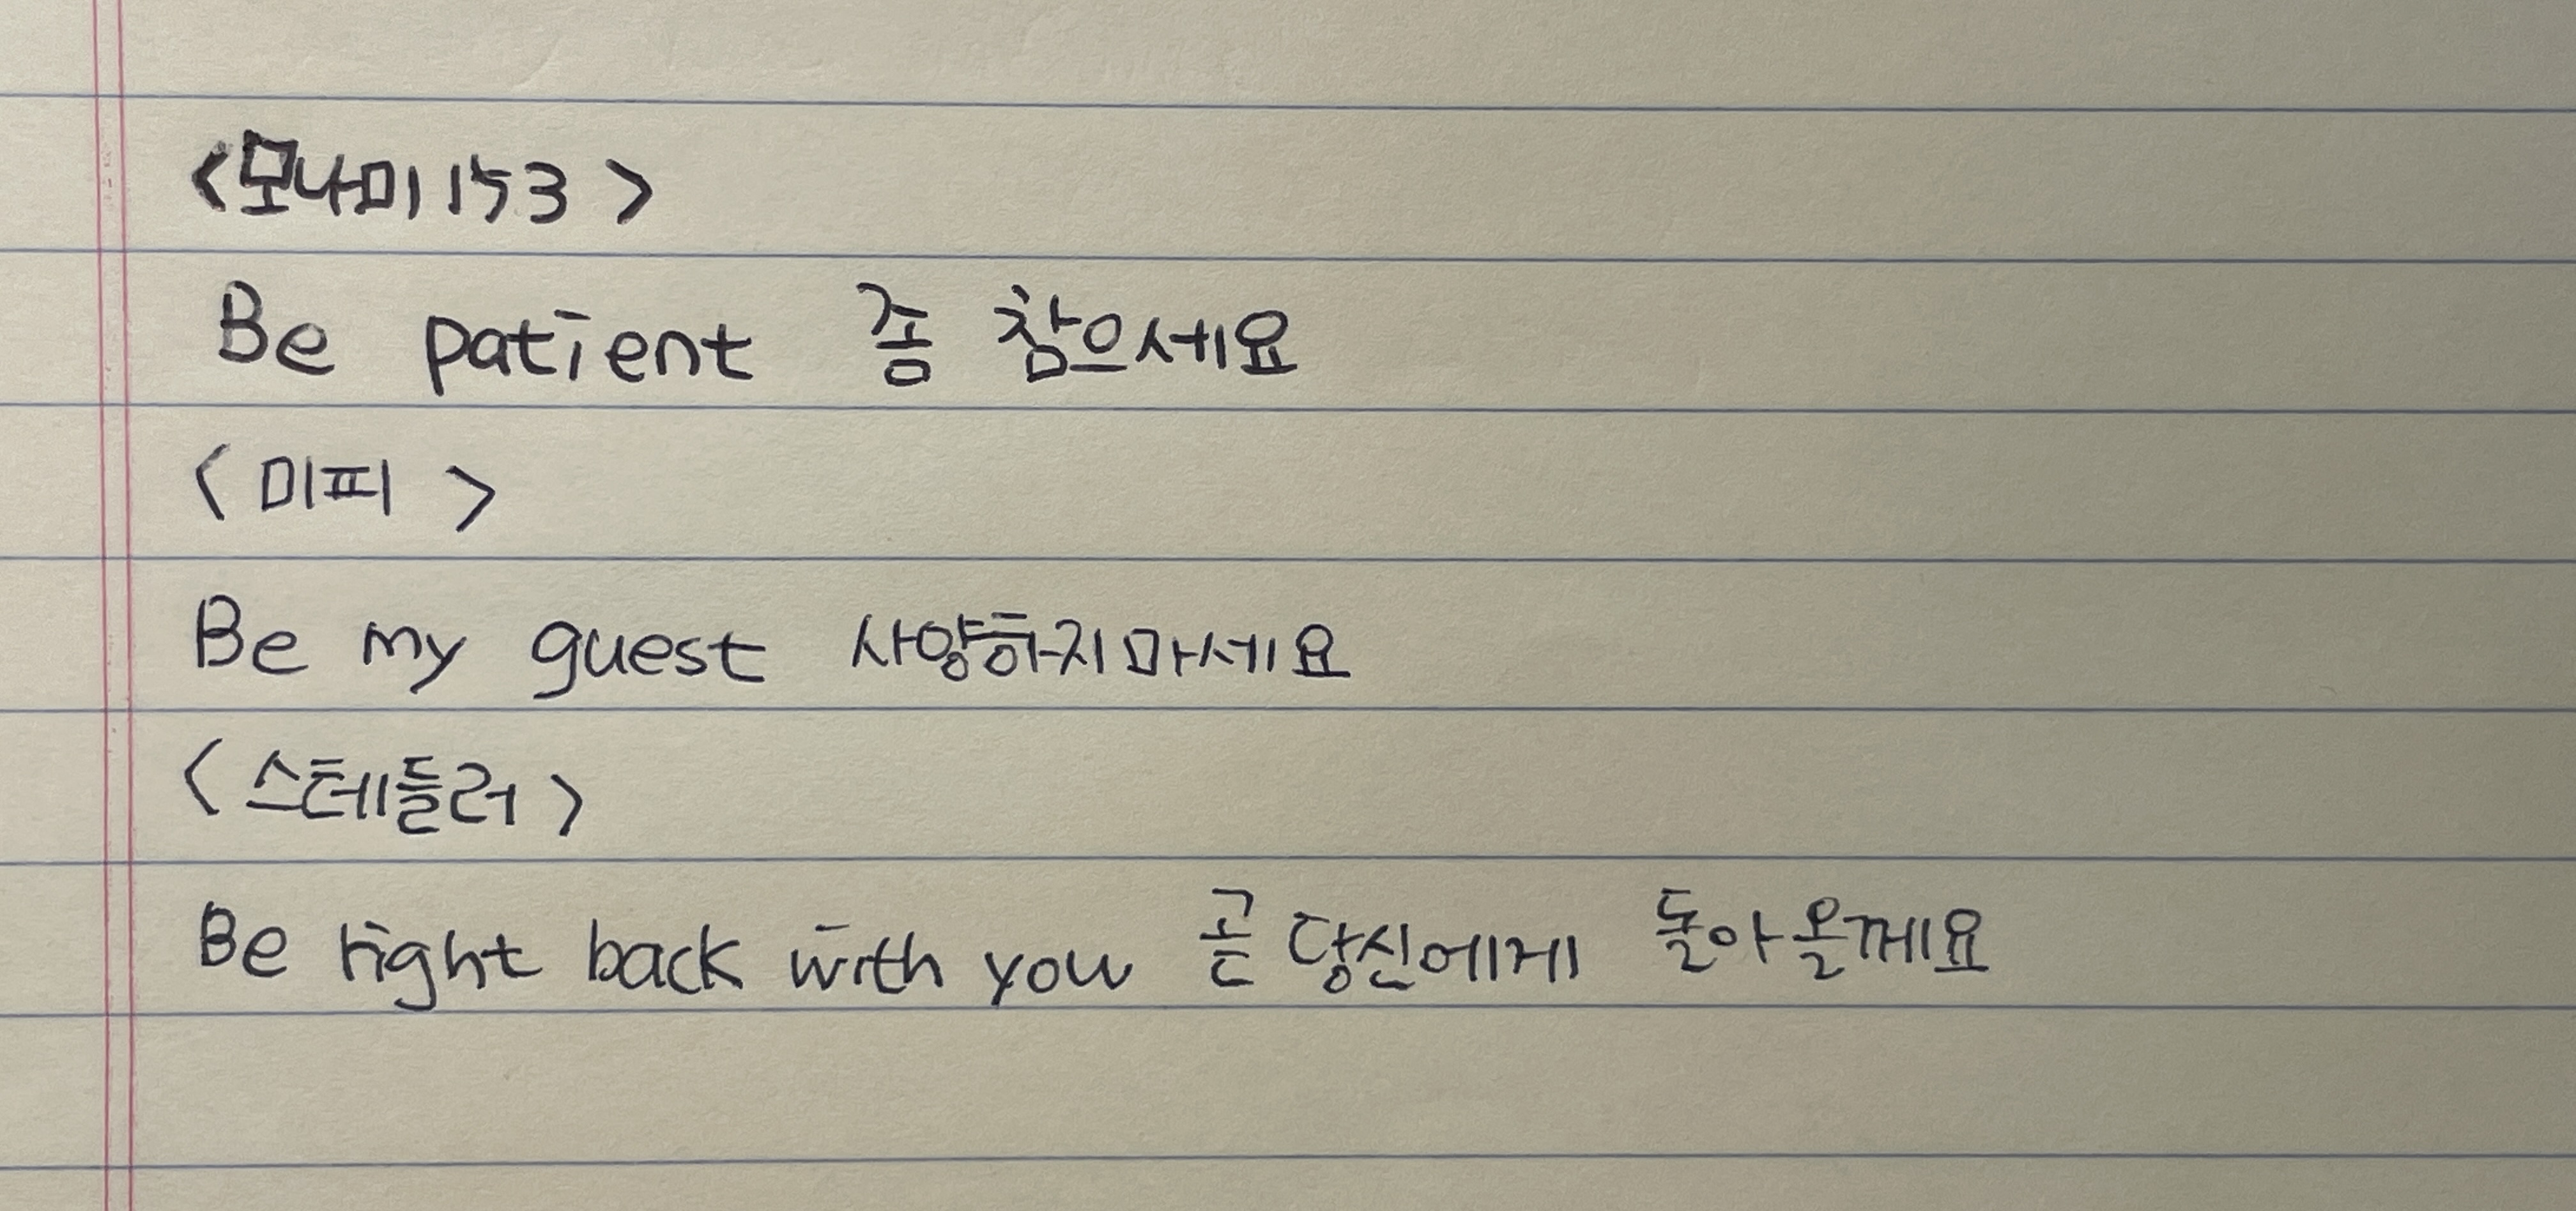 <모나미 153>
Be patient 좀 참으세요
<미피>
Be my guest 사양하지마세요
<스테들러>
Be right back with you 곧 당신에게 돌아올께요